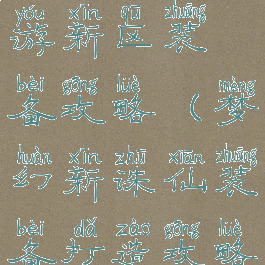 yóu xīn qū zhuāng
游 新 区 装
bèi gōng lüè mèng
备 攻 略 （ 梦
huàn xīn zhū xiān zhuāng
幻 新 诛 仙 装
bèi dǎ zào gōng lüè
备 打 造 攻 略